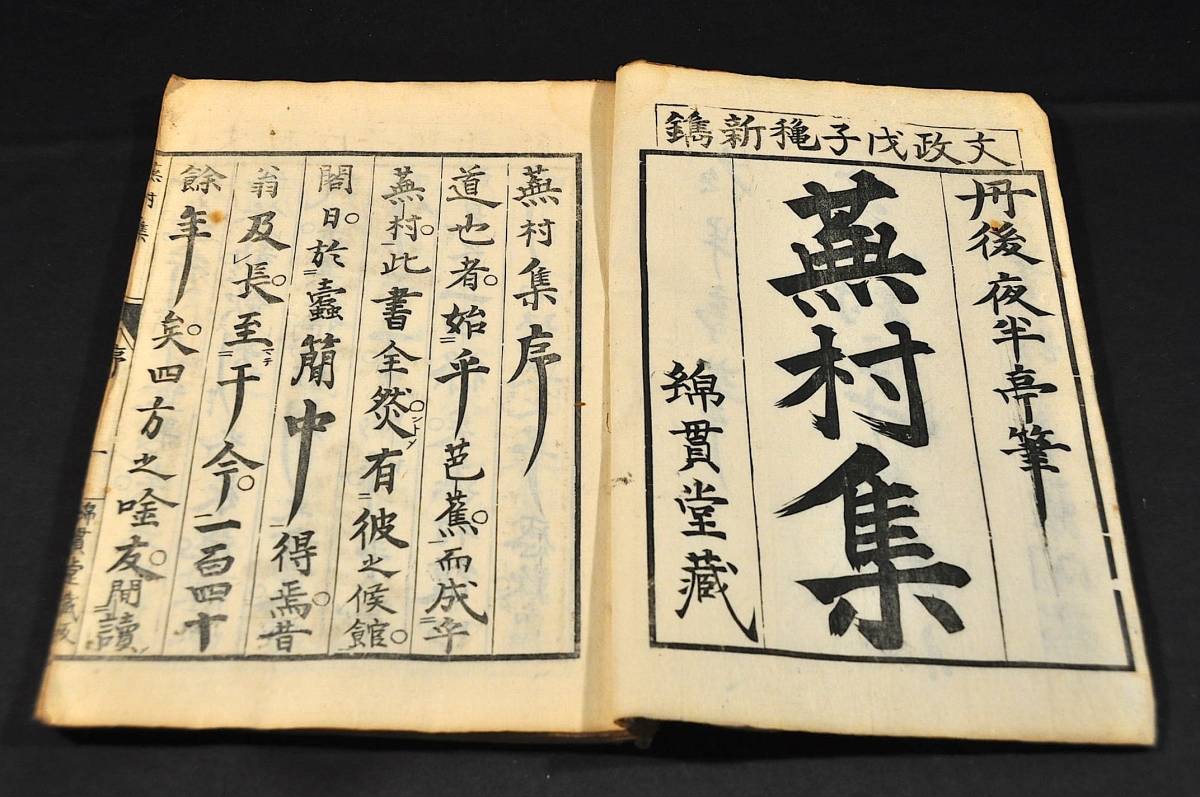 文政戊子龝新鐫
丹後夜半亭筆
蕪村集
綿貫堂藏
蕪村集序
道也者。始乎芭蕉。而成乎
蕪村。此書全然。有彼之候館。
閣。日於蠹簡中得焉。昔
翁及長。至于今。一百四十
餘年矣。四方之唫友。間讀
蕪村集
序
一
綿貫堂藏板